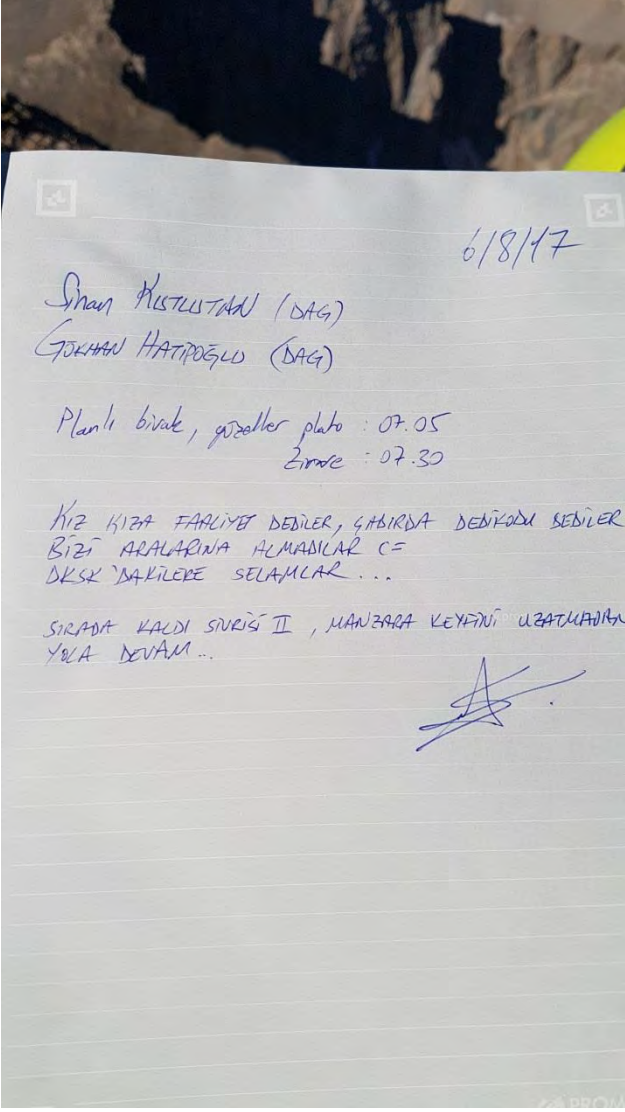 6/8/17
Sinan KUTLUTAN (DAG)
GÖKHAN HATİPOĞLU (DAG)
Planlı bivak, güzeller plato : 07.05
Zirve : 07.30
KIZ KIZA FAALİYET DEDİLER, ÇADIRDA DEDİKODU DEDİLER
BİZİ ARALARINA ALMADILAR C=
DKSK'DAKİLERE SELAMLAR...
SIRADA KALDI SİVRİSİ II, MANZARA KEYFİNİ UZATMADAN
YOLA DEVAM...
PROM